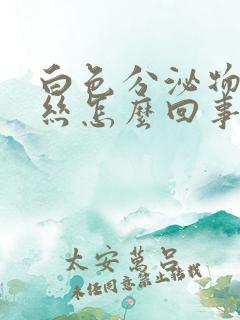 白色分泌物
丝怎麼回事
太安萬呂
未经同意禁止转载